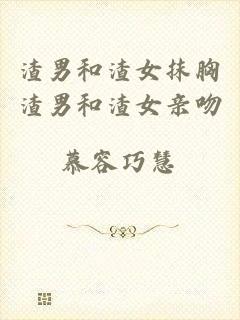 渣男和渣女抹胸
渣男和渣女亲吻
慕容巧慧